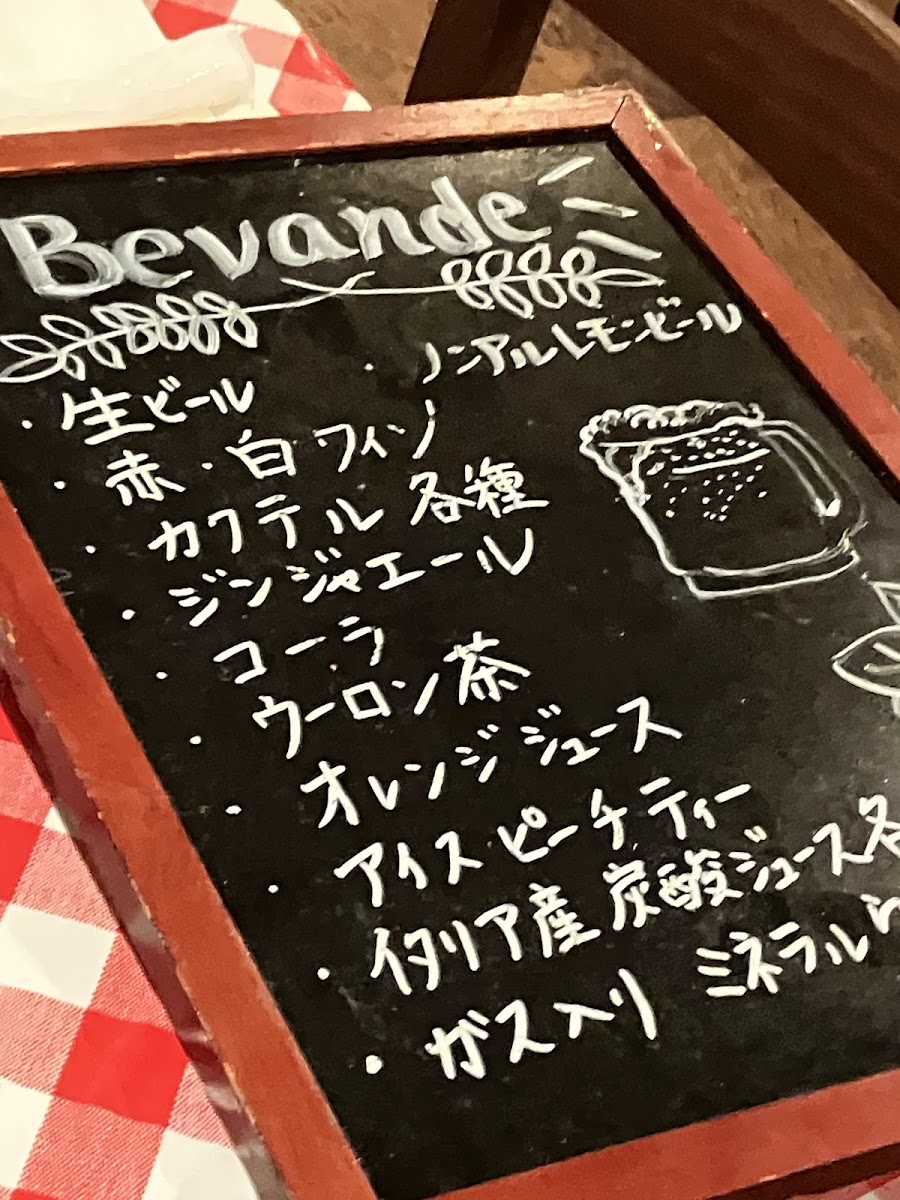 Bevande
・生ビール
・ノンアルレモンビール
・赤・白 ワイン
・カクテル 各種
・ジンジャエール
・コーラ
・ウーロン茶
・オレンジジュース
・アイスピーチティー
・イタリア産 炭酸ジュース各
・ガス入り ミネラル